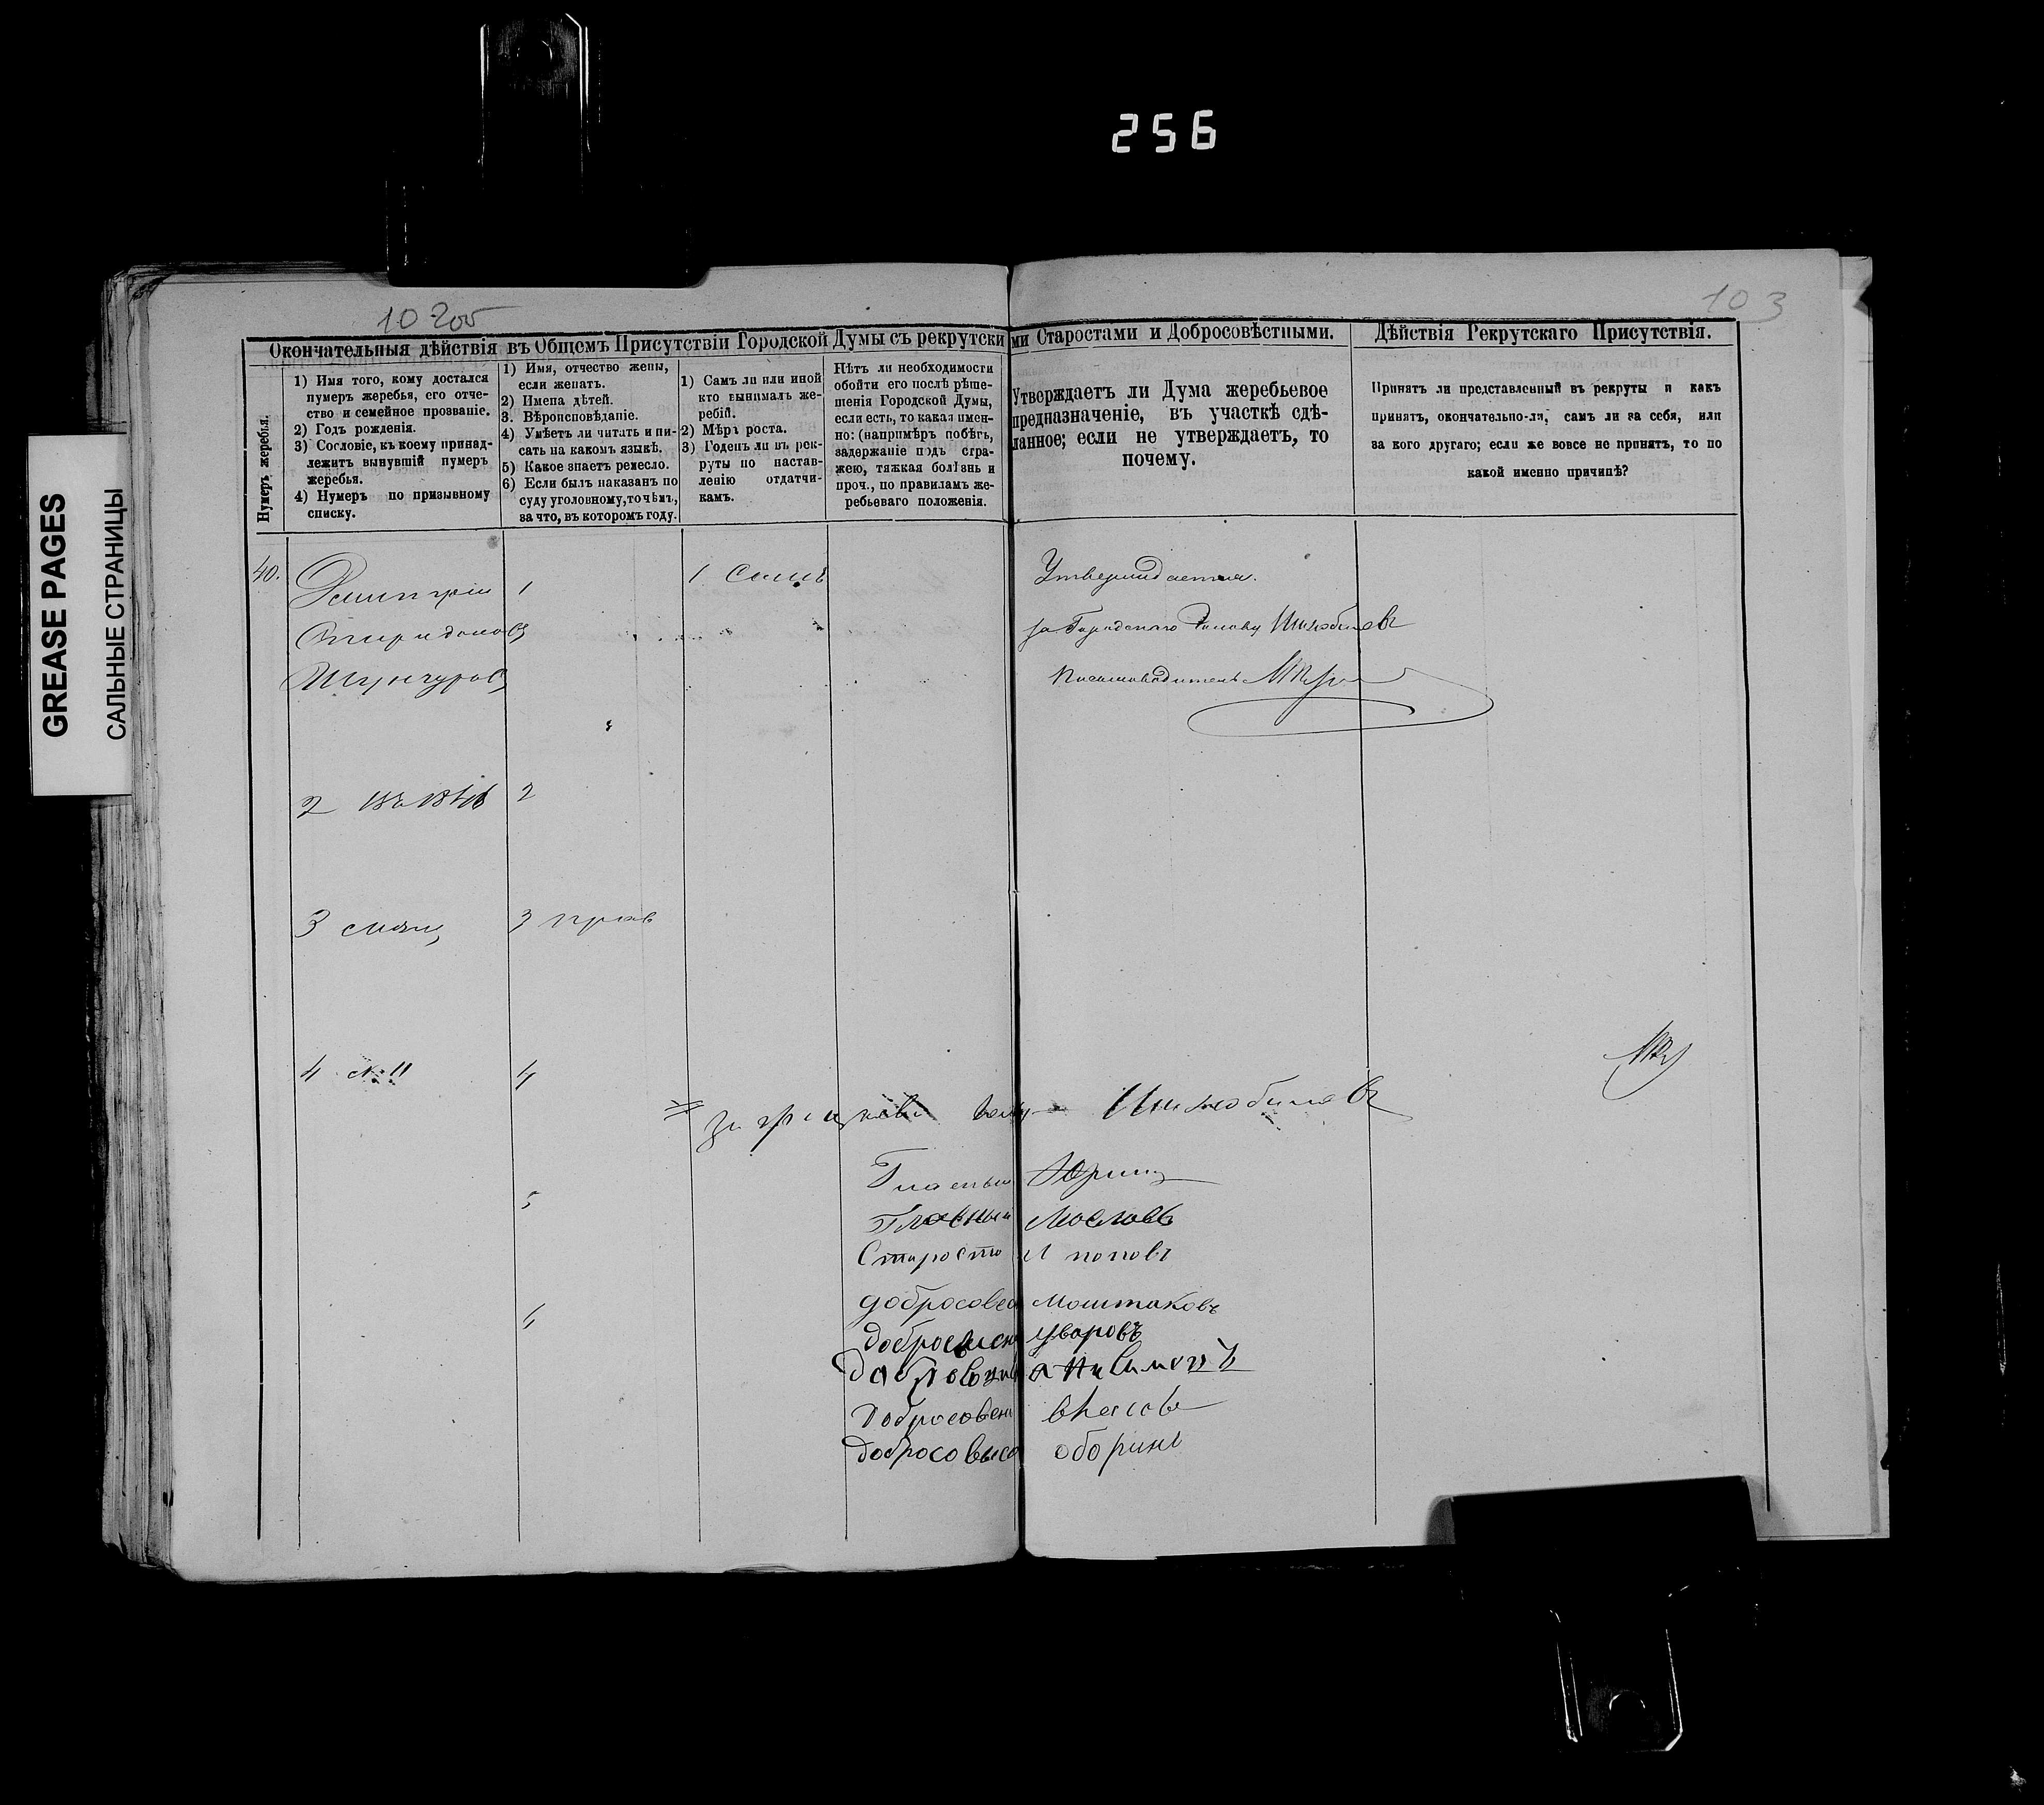 256
GREASE PAGES
САЛЬНЫЕ СТРАНИЦЫ
102об
103
Окончательныя дѣйствія въ Общемъ Присутствіи Городской Думы съ рекрутскими Старостами и Добросовѣстными.
Дѣйствія Рекрутскаго Присутствія.
Нумеръ жеребья.
1) Имя того, кому достался
нумеръ жеребья, его отче-
ство и семейное прозваніе.
2) Годъ рожденія.
3) Сословіе, къ коему принад-
лежитъ вынувшій нумеръ
жеребья.
4) Нумеръ по призывному
списку.
1) Имя, отчество жены,
если женатъ.
2) Имена дѣтей.
3. Вѣроисповѣданіе.
4) Умѣетъ ли читать и пи-
сать на какомъ языкѣ.
5) Какое знаетъ ремесло.
6) Если былъ наказанъ по
суду уголовному, то чѣмъ,
за что, въ которомъ году.
1) Самъ ли или иной
кто вынималъ же-
ребій.
2) Мѣръ роста.
3) Годенъ ли въ рек-
руты по настав-
ленію отдатчи-
камъ.
Нѣтъ ли необходимости
обойти его послѣ рѣше-
шенія Городской Думы,
если есть, то какая имен-
но: (напримѣръ побѣгъ,
задержаніе подъ стра-
жею, тяжкая болѣзнь и
проч., по правиламъ же-
ребьеваго положенія.
Утверждаетъ ли Дума жеребьевое
предназначеніе, въ участкѣ сдѣ-
ланное; если не утверждаетъ, то
почему.
Принятъ ли представленный въ рекруты и какъ
принятъ, окончательно-ли, самъ ли за себя, или
за кого другаго; если же вовсе не принятъ, то по
какой именно причинѣ?
40.
Дмитрій
1
1 Самъ
Утверждается.
Спиридоновъ
за Городскаго Голову
Письмоводитель
2
2
3
3 прав
4 № 11
4
5
Гласный
Гласный Масловъ
Староста И поповъ
6
добросовес Моштаковъ
Уваровъ
Добросовесн власовъ
оборинъ